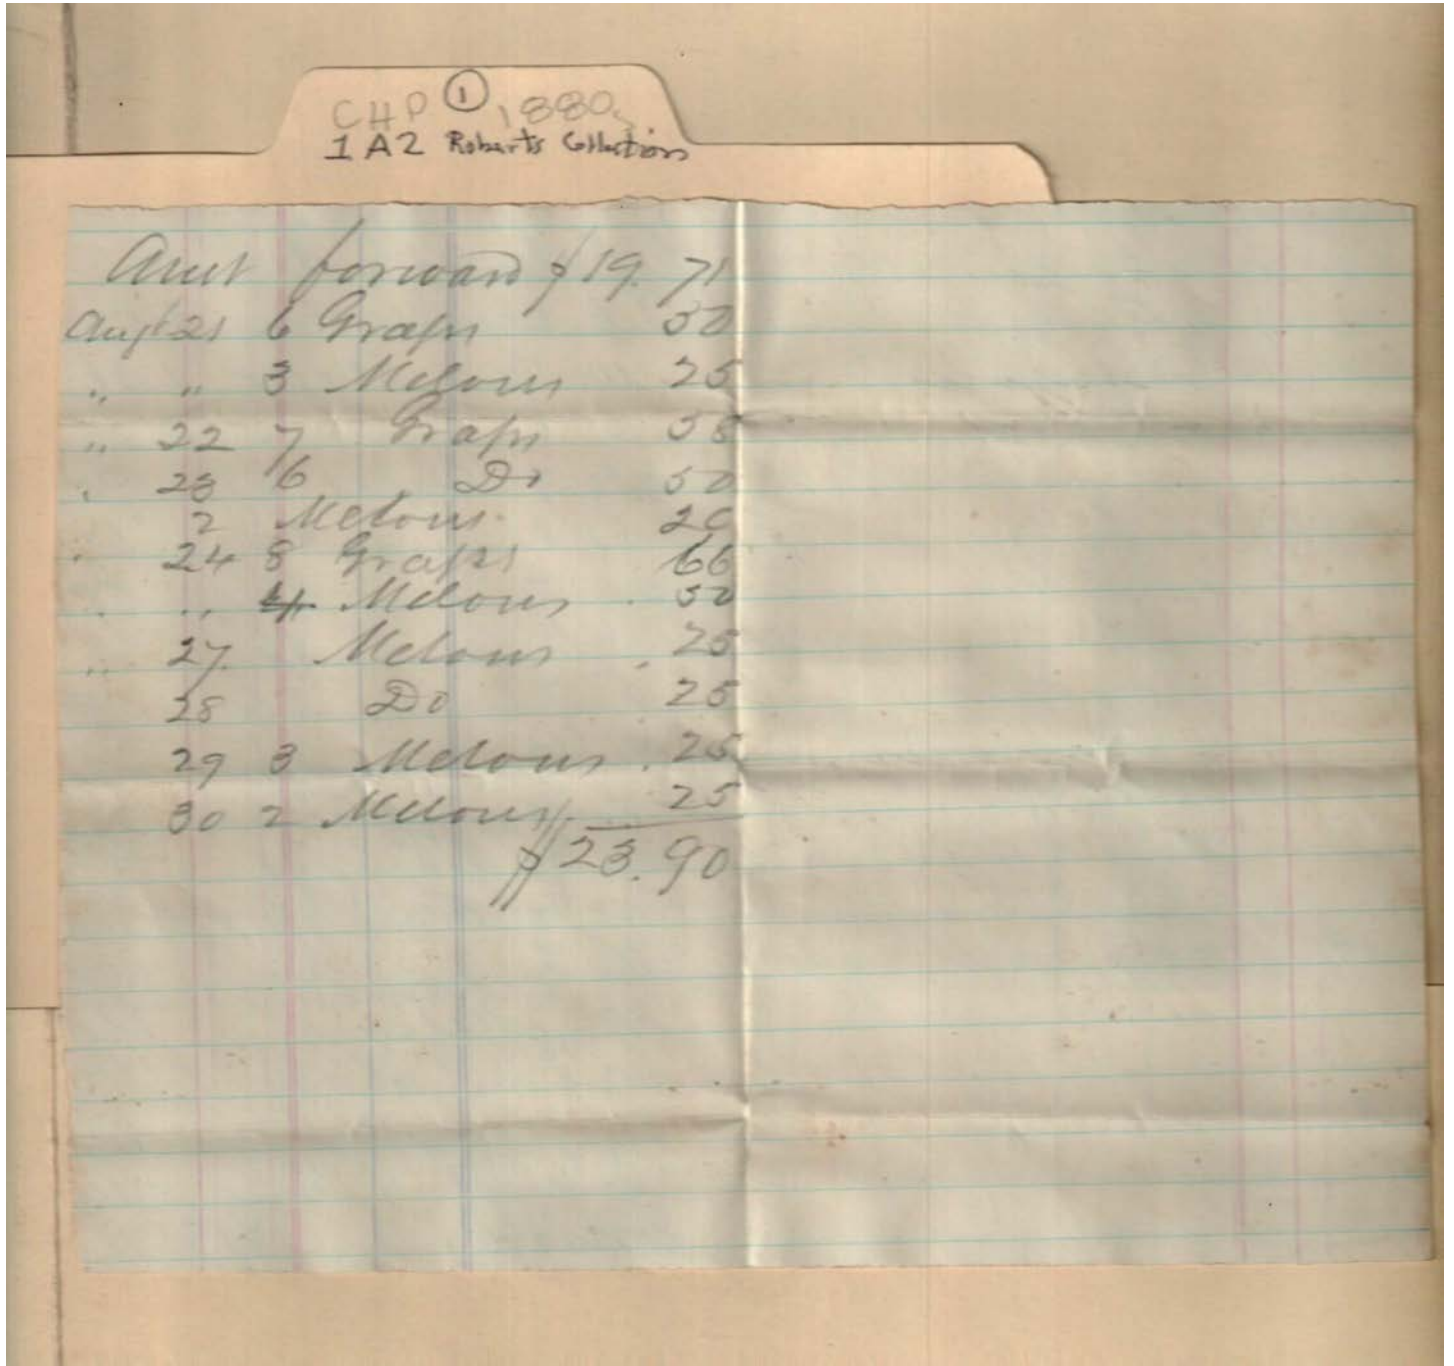 CHP ① 1880s
1A2 Roberts Collection
Amt forward $19.71
Augt 21 6 Graps 50
" " 3 Melons 25
" 22 7 Graps 58
" 23 6 Do 50
2 Melons 20
" 24 8 Graps 66
" " 4 Melons 50
" 27 Melons 25
28 Do 25
29 3 Melons 25
30 2 Melons 25
$23.90